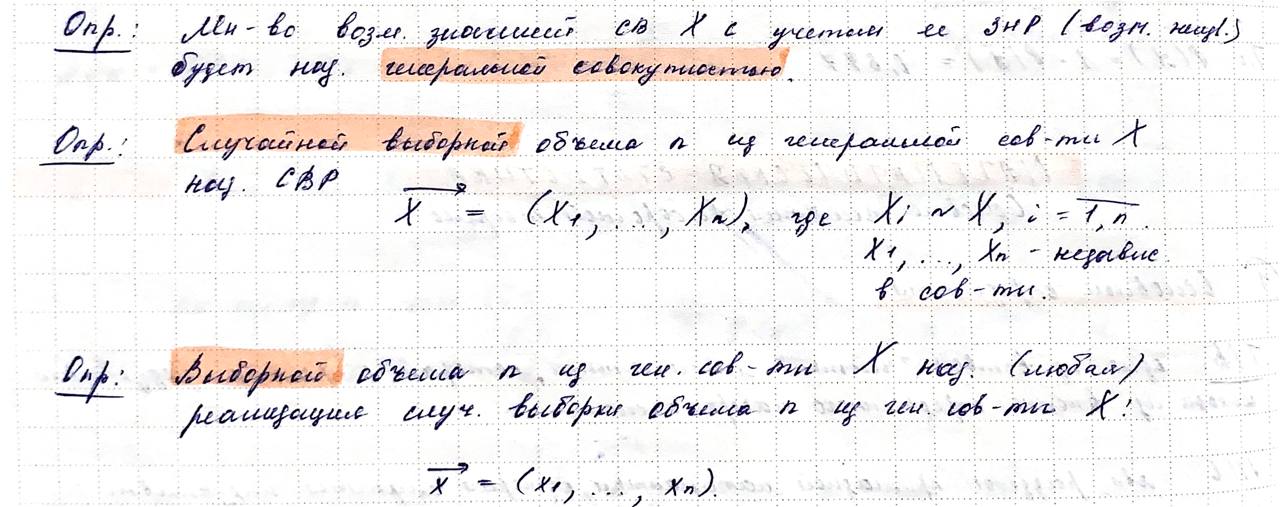 Опр.: Мн-во возм. значений СВ X с учетом ее ЗНР (возм. неизв.)
будет наз. генеральной совокупностью.
Опр.: Случайной выборкой объема n из генеральной сов-ти X
наз. СВР
X⃗ = (X₁, ..., Xₙ), где Xᵢ ~ X, i = 1,n.
X₁, ..., Xₙ - независ.
в сов-ти.
Опр: Выборкой объема n из ген. сов-ти X наз. (любая)
реализация случ. выборки объема n из ген. сов-ти X:
x⃗ = (x₁, ..., xₙ).